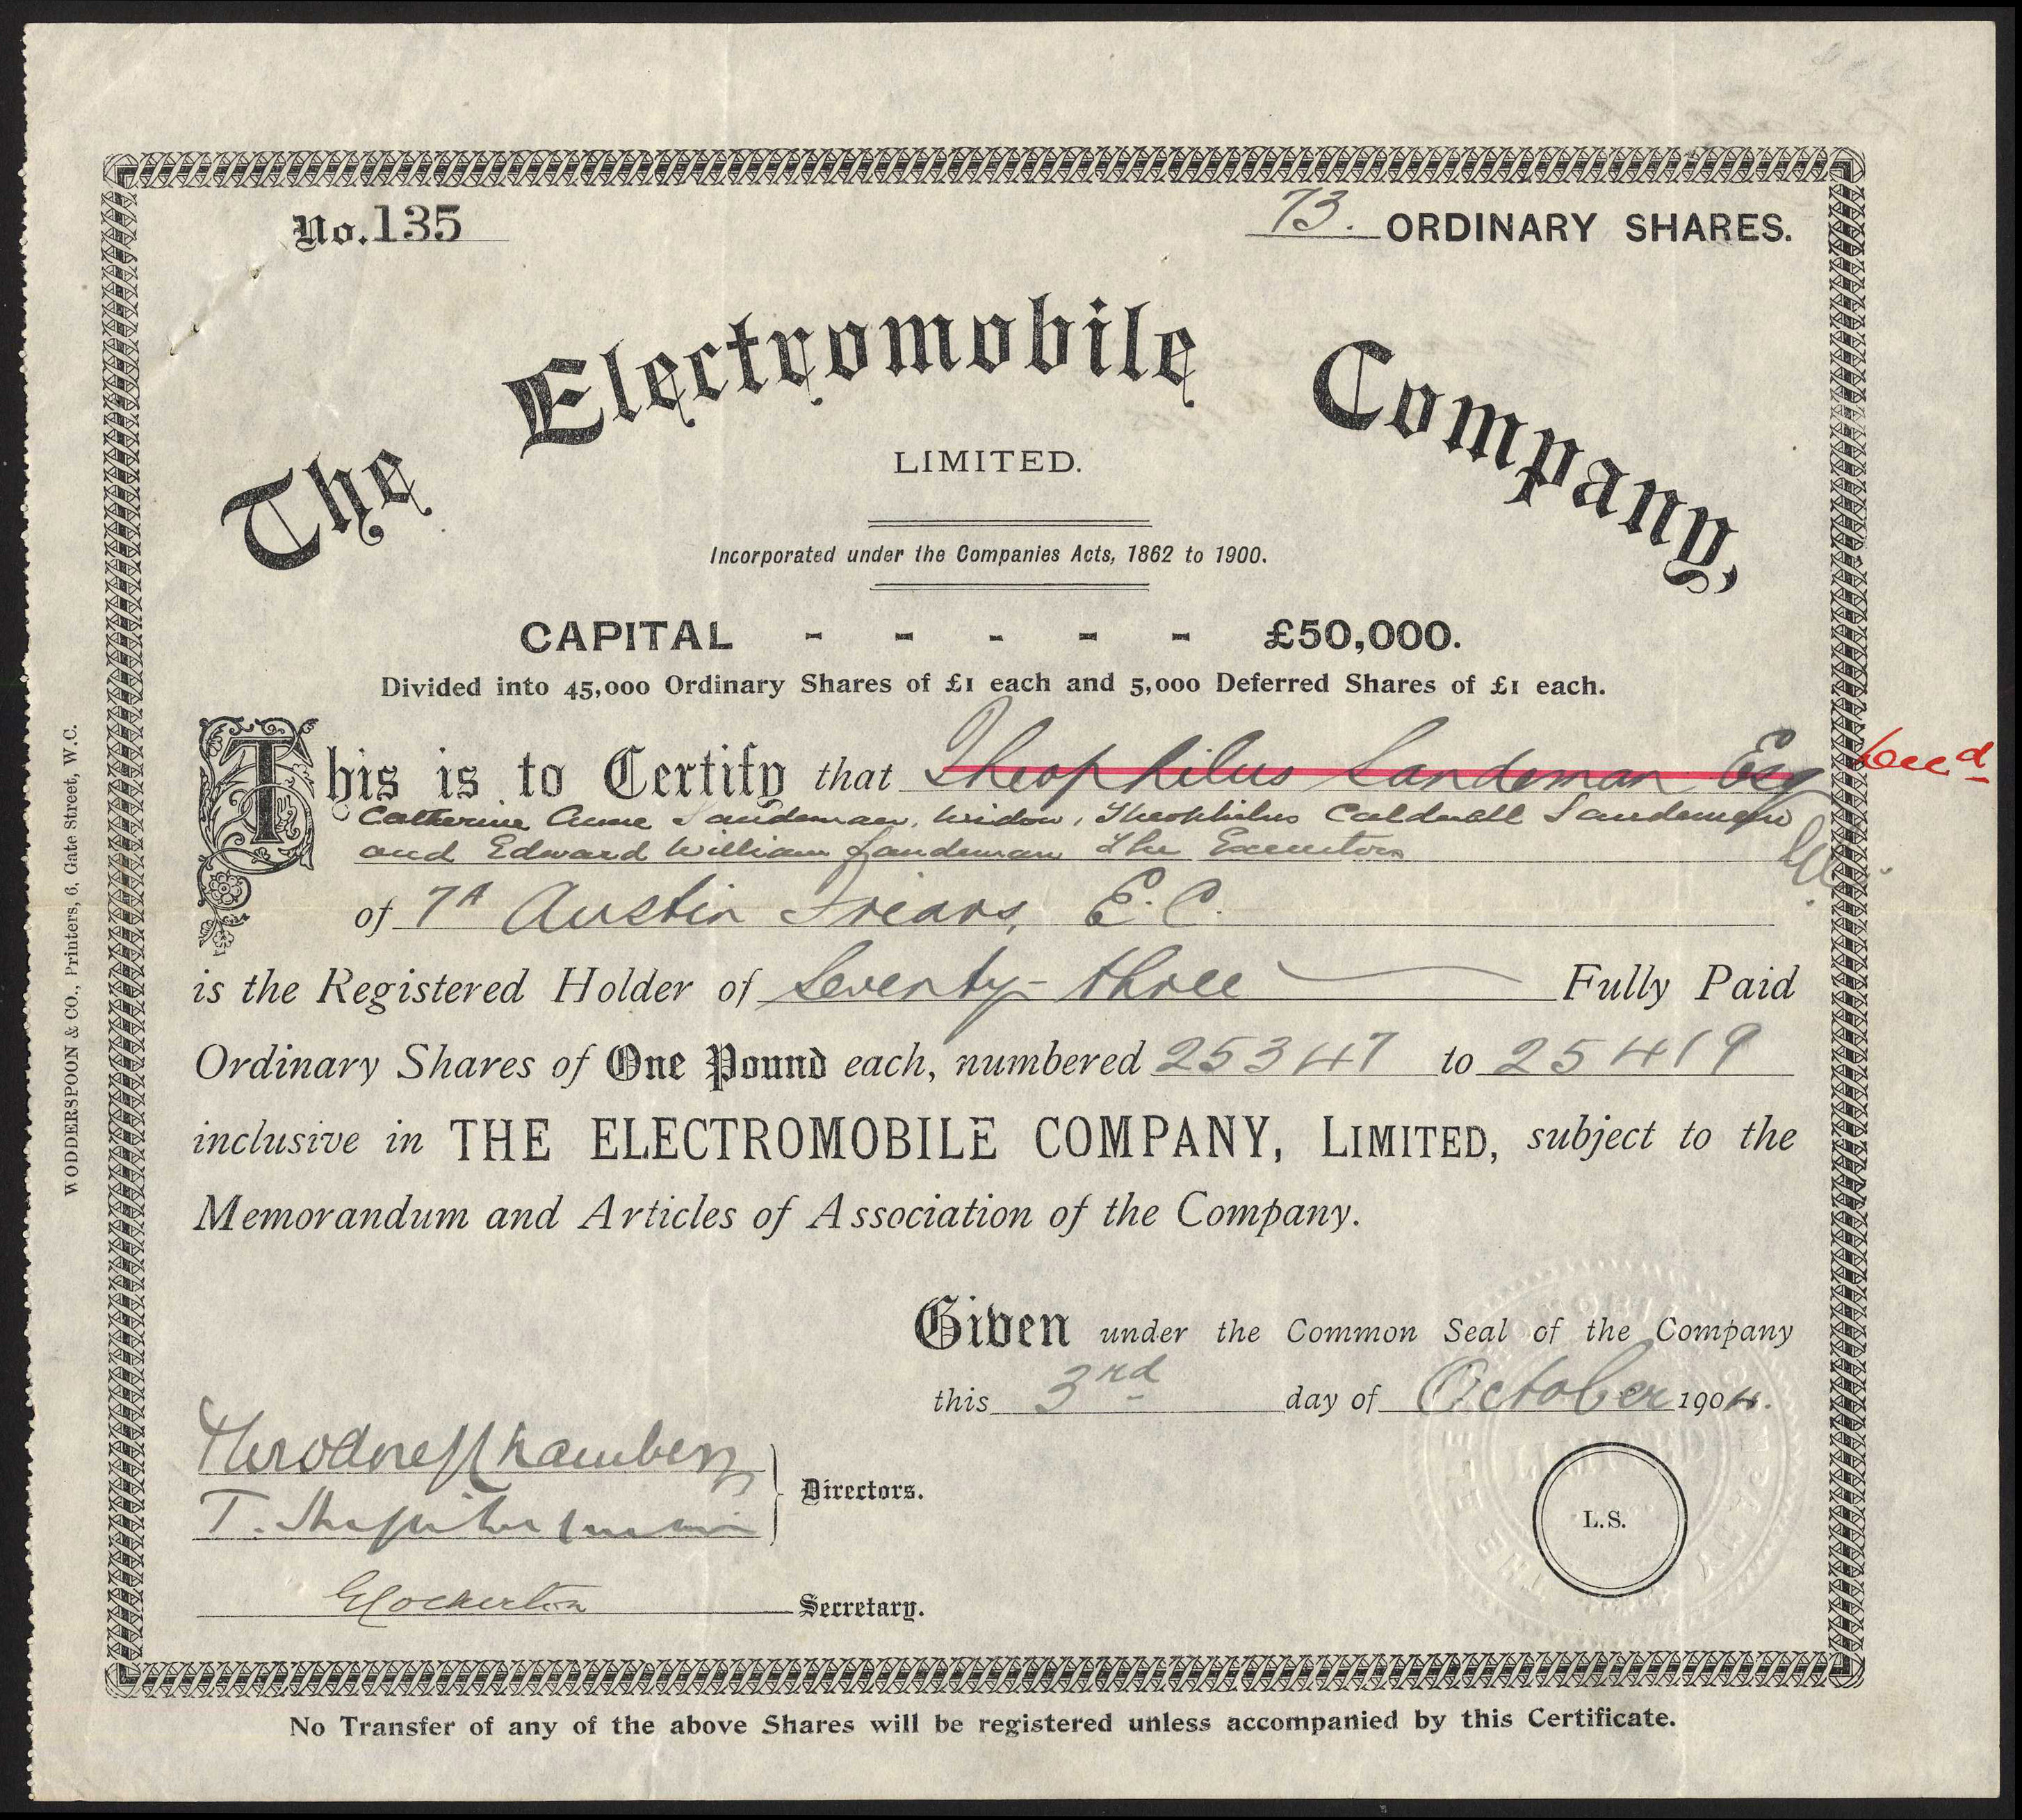 No. 135
73. ORDINARY SHARES.
The Electromobile Company,
LIMITED.
Incorporated under the Companies Acts, 1862 to 1900.
CAPITAL - - - - - £50,000.
Divided into 45,000 Ordinary Shares of £1 each and 5,000 Deferred Shares of £1 each.
This is to Certify that Theophilus Sandeman Esq Decd
Catherine Anne Sandeman, Widow, Theophilus Caldwell Sandeman
and Edward William Sandeman The Executors
of 7A Austin Friars, E.C.
is the Registered Holder of Seventy-three Fully Paid
Ordinary Shares of One Pound each, numbered 25347 to 25419
inclusive in THE ELECTROMOBILE COMPANY, LIMITED, subject to the
Memorandum and Articles of Association of the Company.
Given under the Common Seal of the Company
this 3rd day of October 1904.
Theodore Chambers
Directors.
T.
L.S.
Secretary.
No Transfer of any of the above Shares will be registered unless accompanied by this Certificate.
WODDERSPOON & CO., Printers, 6, Gate Street, W.C.